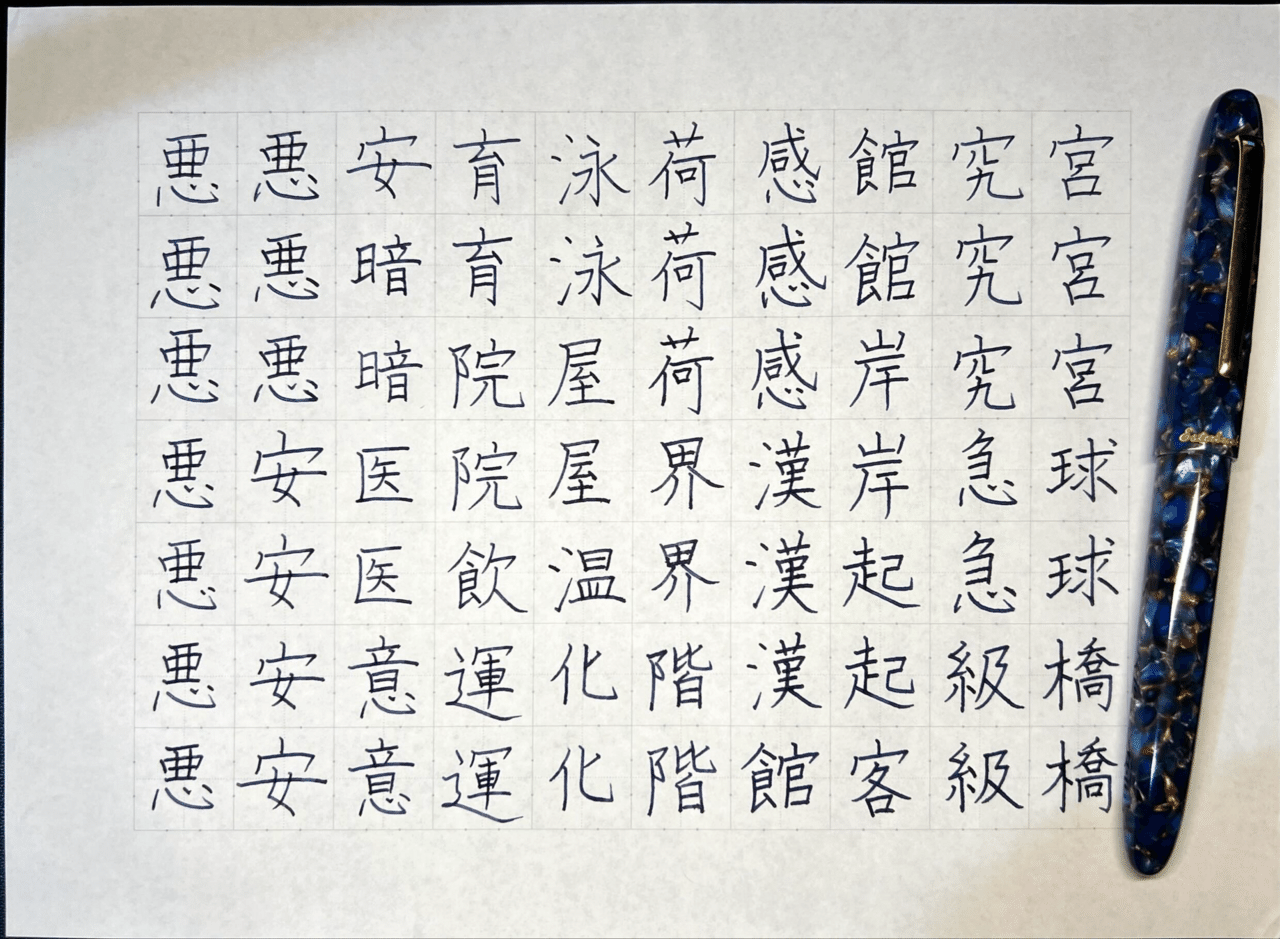 悪悪悪悪悪悪悪
悪悪悪安安安安
安暗暗医医意意
育育院院飲運運
泳泳屋屋温化化
荷荷荷界界階階
感感感漢漢漢館
館館岸岸起起客
究究究急急級級
宮宮宮球球橋橋